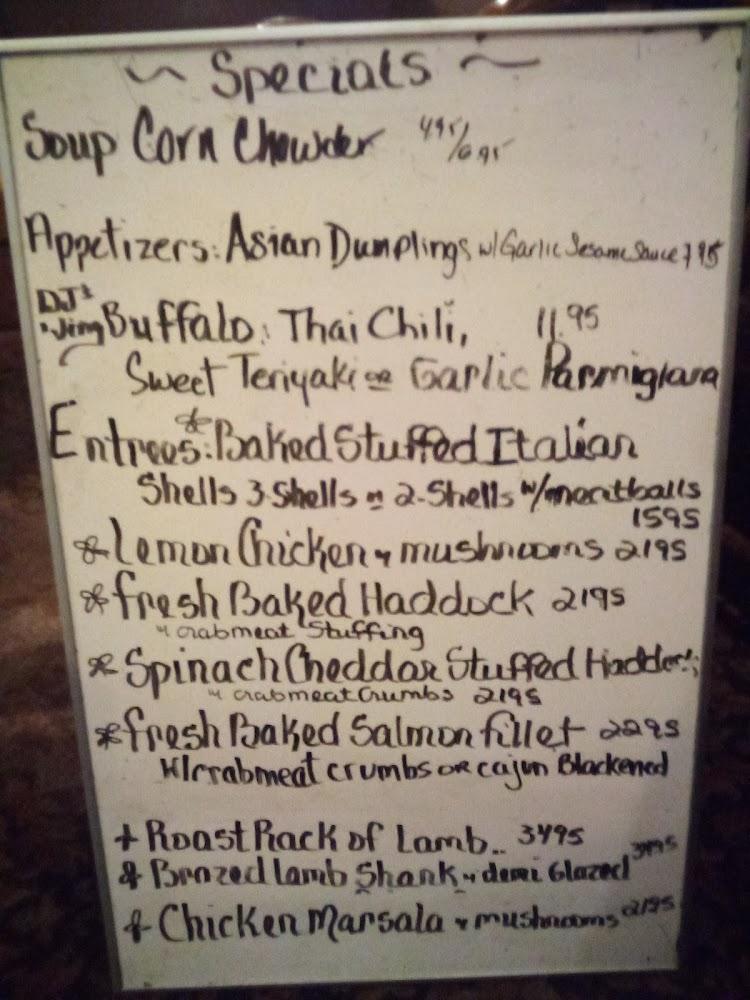 ~ Specials ~
Soup Corn Chowder 495/695
Appetizers: Asian Dumplings w/ Garlic Sesame Sauce 795
DJ's
Wing Buffalo: Thai Chili, 11.95
Sweet Teriyaki or Garlic Parmigiana
Entrees: Baked Stuffed Italian
Shells 3-Shells or 2-Shells w/meatballs
1595
Lemon Chicken w mushrooms 2195
fresh Baked Haddock 2195
w crabmeat Stuffing
Spinach Cheddar Stuffed
w crabmeat Crumbs 2195
fresh Baked Salmon fillet 2295
w/crabmeat crumbs or cajun Blackened
+ Roast Rack of Lamb.. 3495
Brazed Lamb Shank w demi Glazed
Chicken Marsala w mushrooms 2195